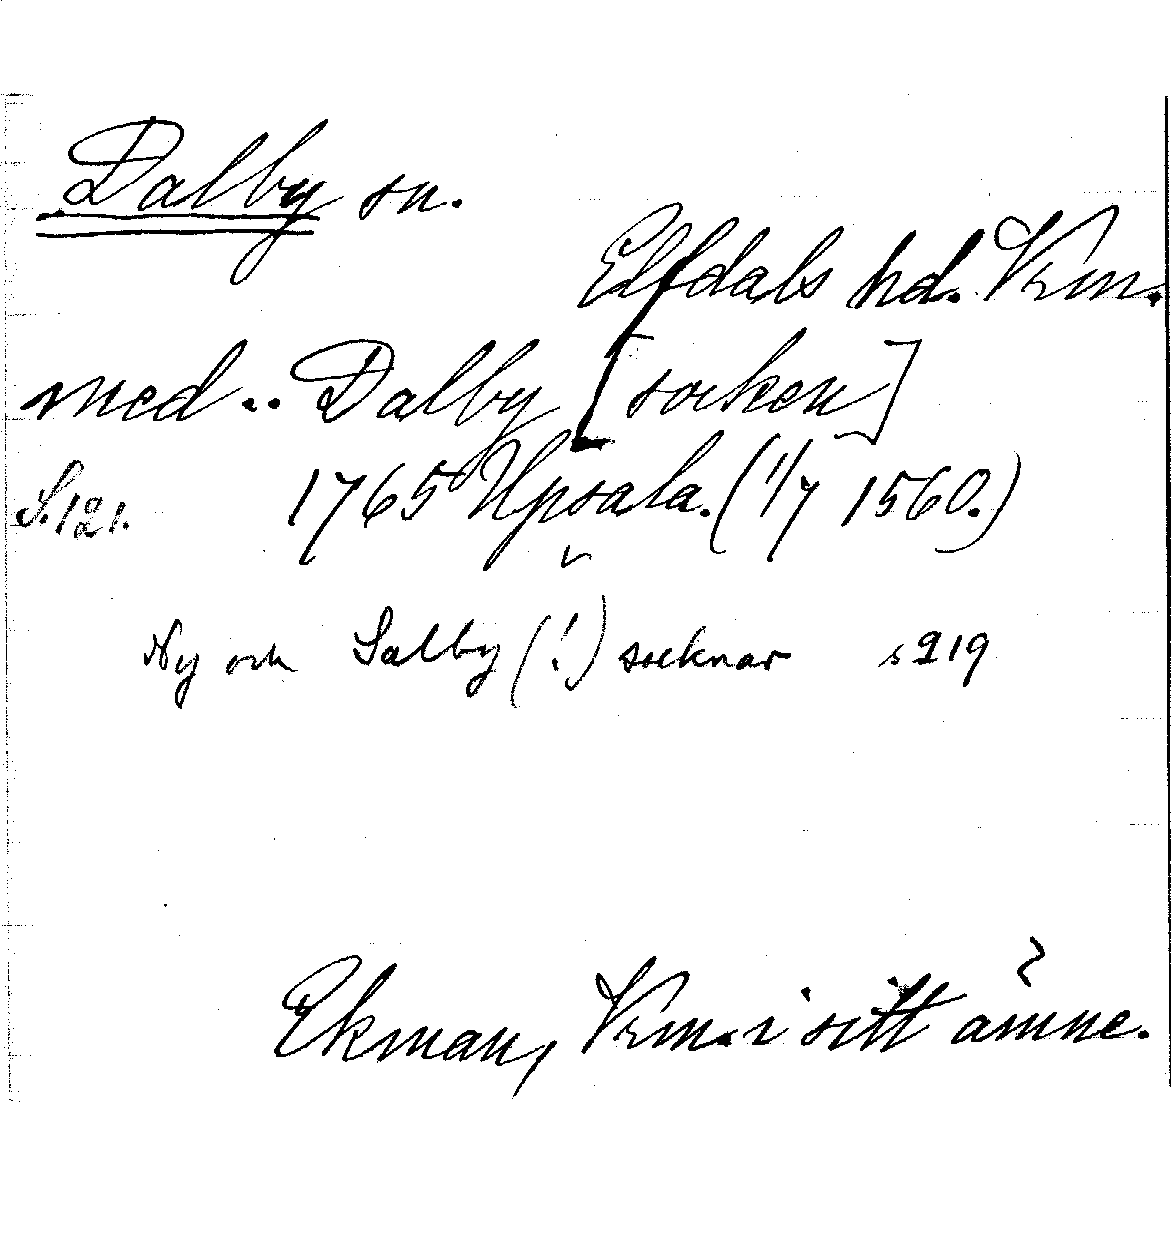 Dalby sn.
Elfdals hd. Vrm.
med .. Dalby [socken]
S. 121. 1765 Upsala. (1/7 1560.)
Ny och Salby (!) socknar s 219
Ekman, Vrm. i sitt ämne.